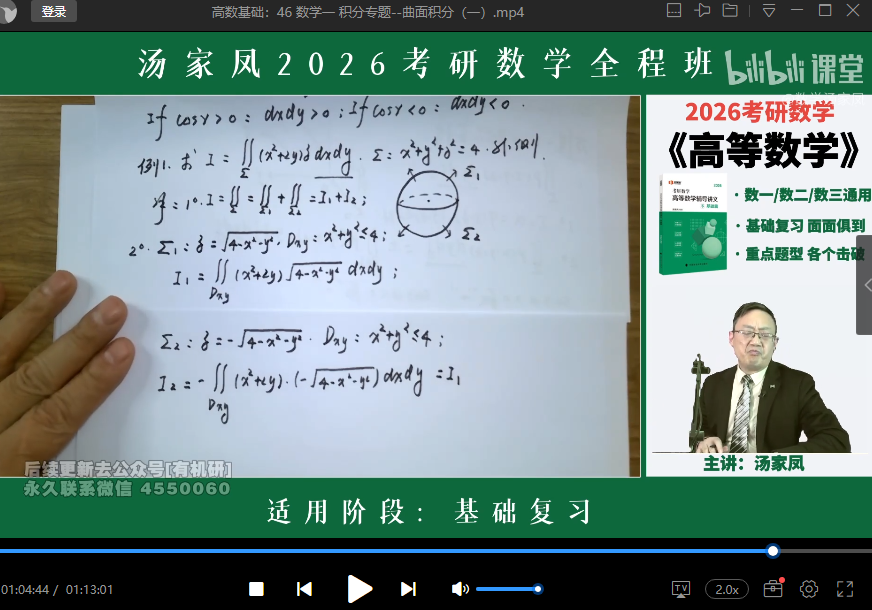 登录
高数基础：46 数学一 积分专题--曲面积分（一）.mp4
汤家凤2026考研数学全程班
bilibili课堂
If cosγ>0：dxdy>0；If cosγ<0：dxdy<0．
例1. 求 I = ∬_Σ (x²+2y)z dxdy．Σ：x²+y²+z²=4．外侧．
解：1°. I = ∬_Σ = ∬_Σ₁ + ∬_Σ₂ = I₁+I₂；
Σ₁
Σ₂
2°. Σ₁：z = √(4-x²-y²)．Dxy：x²+y²≤4；
I₁ = ∬_Dxy (x²+2y)√(4-x²-y²) dxdy；
Σ₂：z = -√(4-x²-y²)．Dxy：x²+y²≤4；
I₂ = -∬_Dxy (x²+2y)·(-√(4-x²-y²)) dxdy = I₁
后续更新去公众号[有机研]
永久联系微信 4550060
2026考研数学
《高等数学》
高等数学辅导讲义
· 数一/数二/数三通用
· 基础复习 面面俱到
· 重点题型 各个击破
主讲：汤家凤
适用阶段：基础复习
01:04:44 / 01:13:01
TV
2.0x